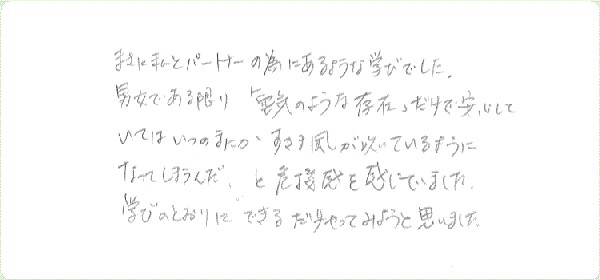 まさに私とパートナーの為にあるような学びでした。
男女である限り「空気のような存在」だけで安心して
いてはいつのまにか、すきま風が吹いているように
なってしまうんだ、と危機感を感じていました。
学びのとおりに できるだけやってみようと思いました。